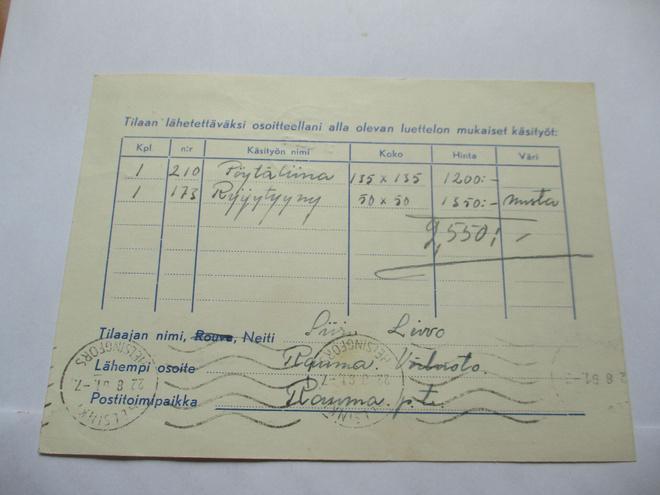 Tilaan lähetettäväksi osoitteellani alla olevan luettelon mukaiset käsityöt:
Kpl. n:r Käsityön nimi Koko Hinta Väri
1 210 Pöytäliina 135 x 135 1200:-
1 173 Ryijytyyny 50 x 50 1350:- musta
2,550:-
Tilaajan nimi, Rouva, Neiti Siiri Livvo
Lähempi osoite Rauma.
Postitoimipaikka Rauma. p.t.
HELSINKI HELSINGFORS 22.8.51.-7
HELSINKI HELSINGFORS 22.8.51.-7
22.8.51.-7